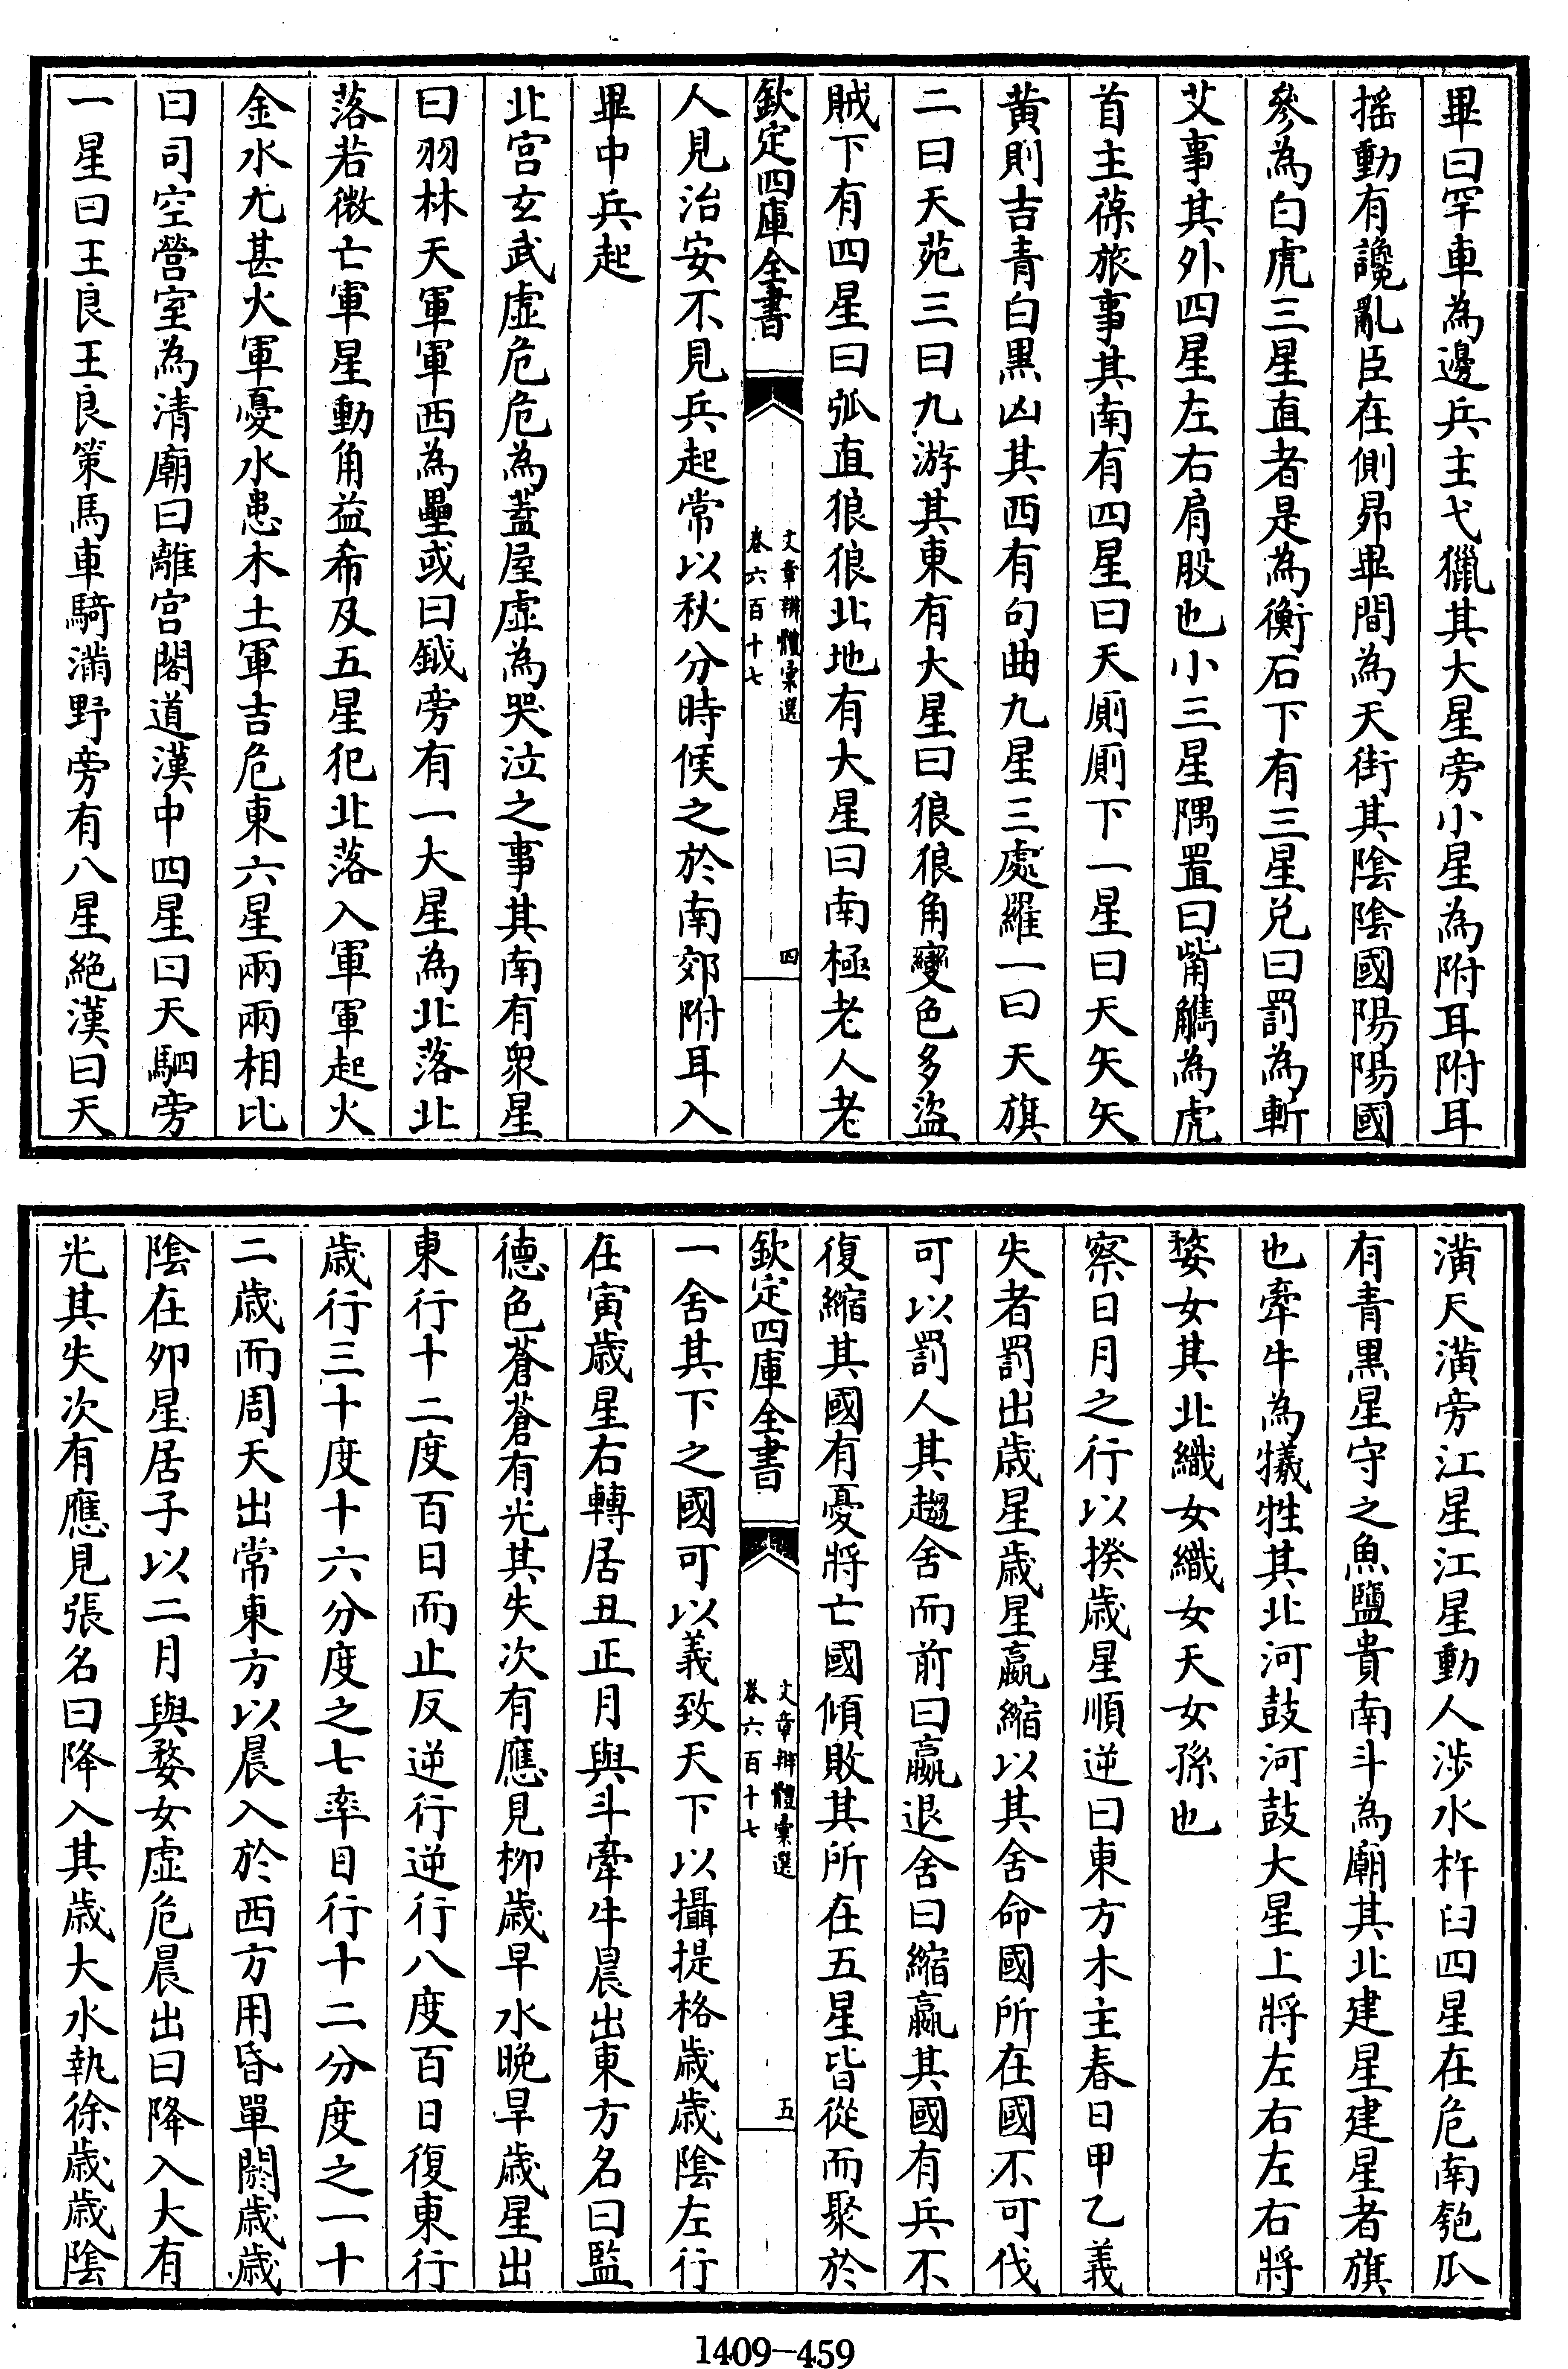 畢曰罕車為邊兵主弋獵其大星旁小星為附耳附耳
揺動有讒亂臣在側昴畢間為天街其陰陰國陽陽國
參為白虎三星直者是為衡石下有三星兊曰罰為斬
艾事其外四星左右肩股也小三星隅置曰觜觿為虎
首主葆旅事其南有四星曰天厠厠下一星曰天矢矢
黄則吉青白黒凶其西有句曲九星三處羅一曰天旗
二曰天苑三曰九游其東有大星曰狼狼角變色多盜
賊下有四星曰弧直狼狼北地有大星曰南極老人老
欽定四庫全書
文章辨體彙選
卷六百十七
四
人見治安不見兵起常以秋分時候之於南郊附耳入
畢中兵起
北宫玄武虚危危為蓋屋虚為哭泣之事其南有衆星
曰羽林天軍軍西為壘或曰鉞旁有一大星為北落北
落若微亡軍星動角益希及五星犯北落入軍軍起火
金水尤甚火軍憂水患木土軍吉危東六星兩兩相比
曰司空營室為清廟曰離宫閣道漢中四星曰天駟旁
一星曰王良王良策馬車騎滿野旁有八星絶漢曰天
潢天潢旁江星江星動人渉水杵臼四星在危南匏瓜
有青黒星守之魚鹽貴南斗為廟其北建星建星者旗
也牽牛為犧牲其北河鼓河鼓大星上將左右左右將
婺女其北織女織女天女孫也
察日月之行以揆歳星順逆曰東方木主春日甲乙義
失者罰出歳星歳星贏縮以其舍命國所在國不可伐
可以罰人其趨舍而前曰贏退舍曰縮贏其國有兵不
復縮其國有憂將亡國傾敗其所在五星皆從而聚於
欽定四庫全書
文章辨體彙選
卷六百十七
五
一舍其下之國可以義致天下以攝提格歳歳陰左行
在寅歳星右轉居丑正月與斗牽牛晨出東方名曰監
德色蒼蒼有光其失次有應見柳歳早水晩旱歳星出
東行十二度百日而止反逆行逆行八度百日復東行
歳行三十度十六分度之七率日行十二分度之一十
二歳而周天出常東方以晨入於西方用昏單閼歳歳
陰在夘星居子以二月與婺女虚危晨出曰降入大有
光其失次有應見張名曰降入其歳大水執徐歳歳陰
1409—459